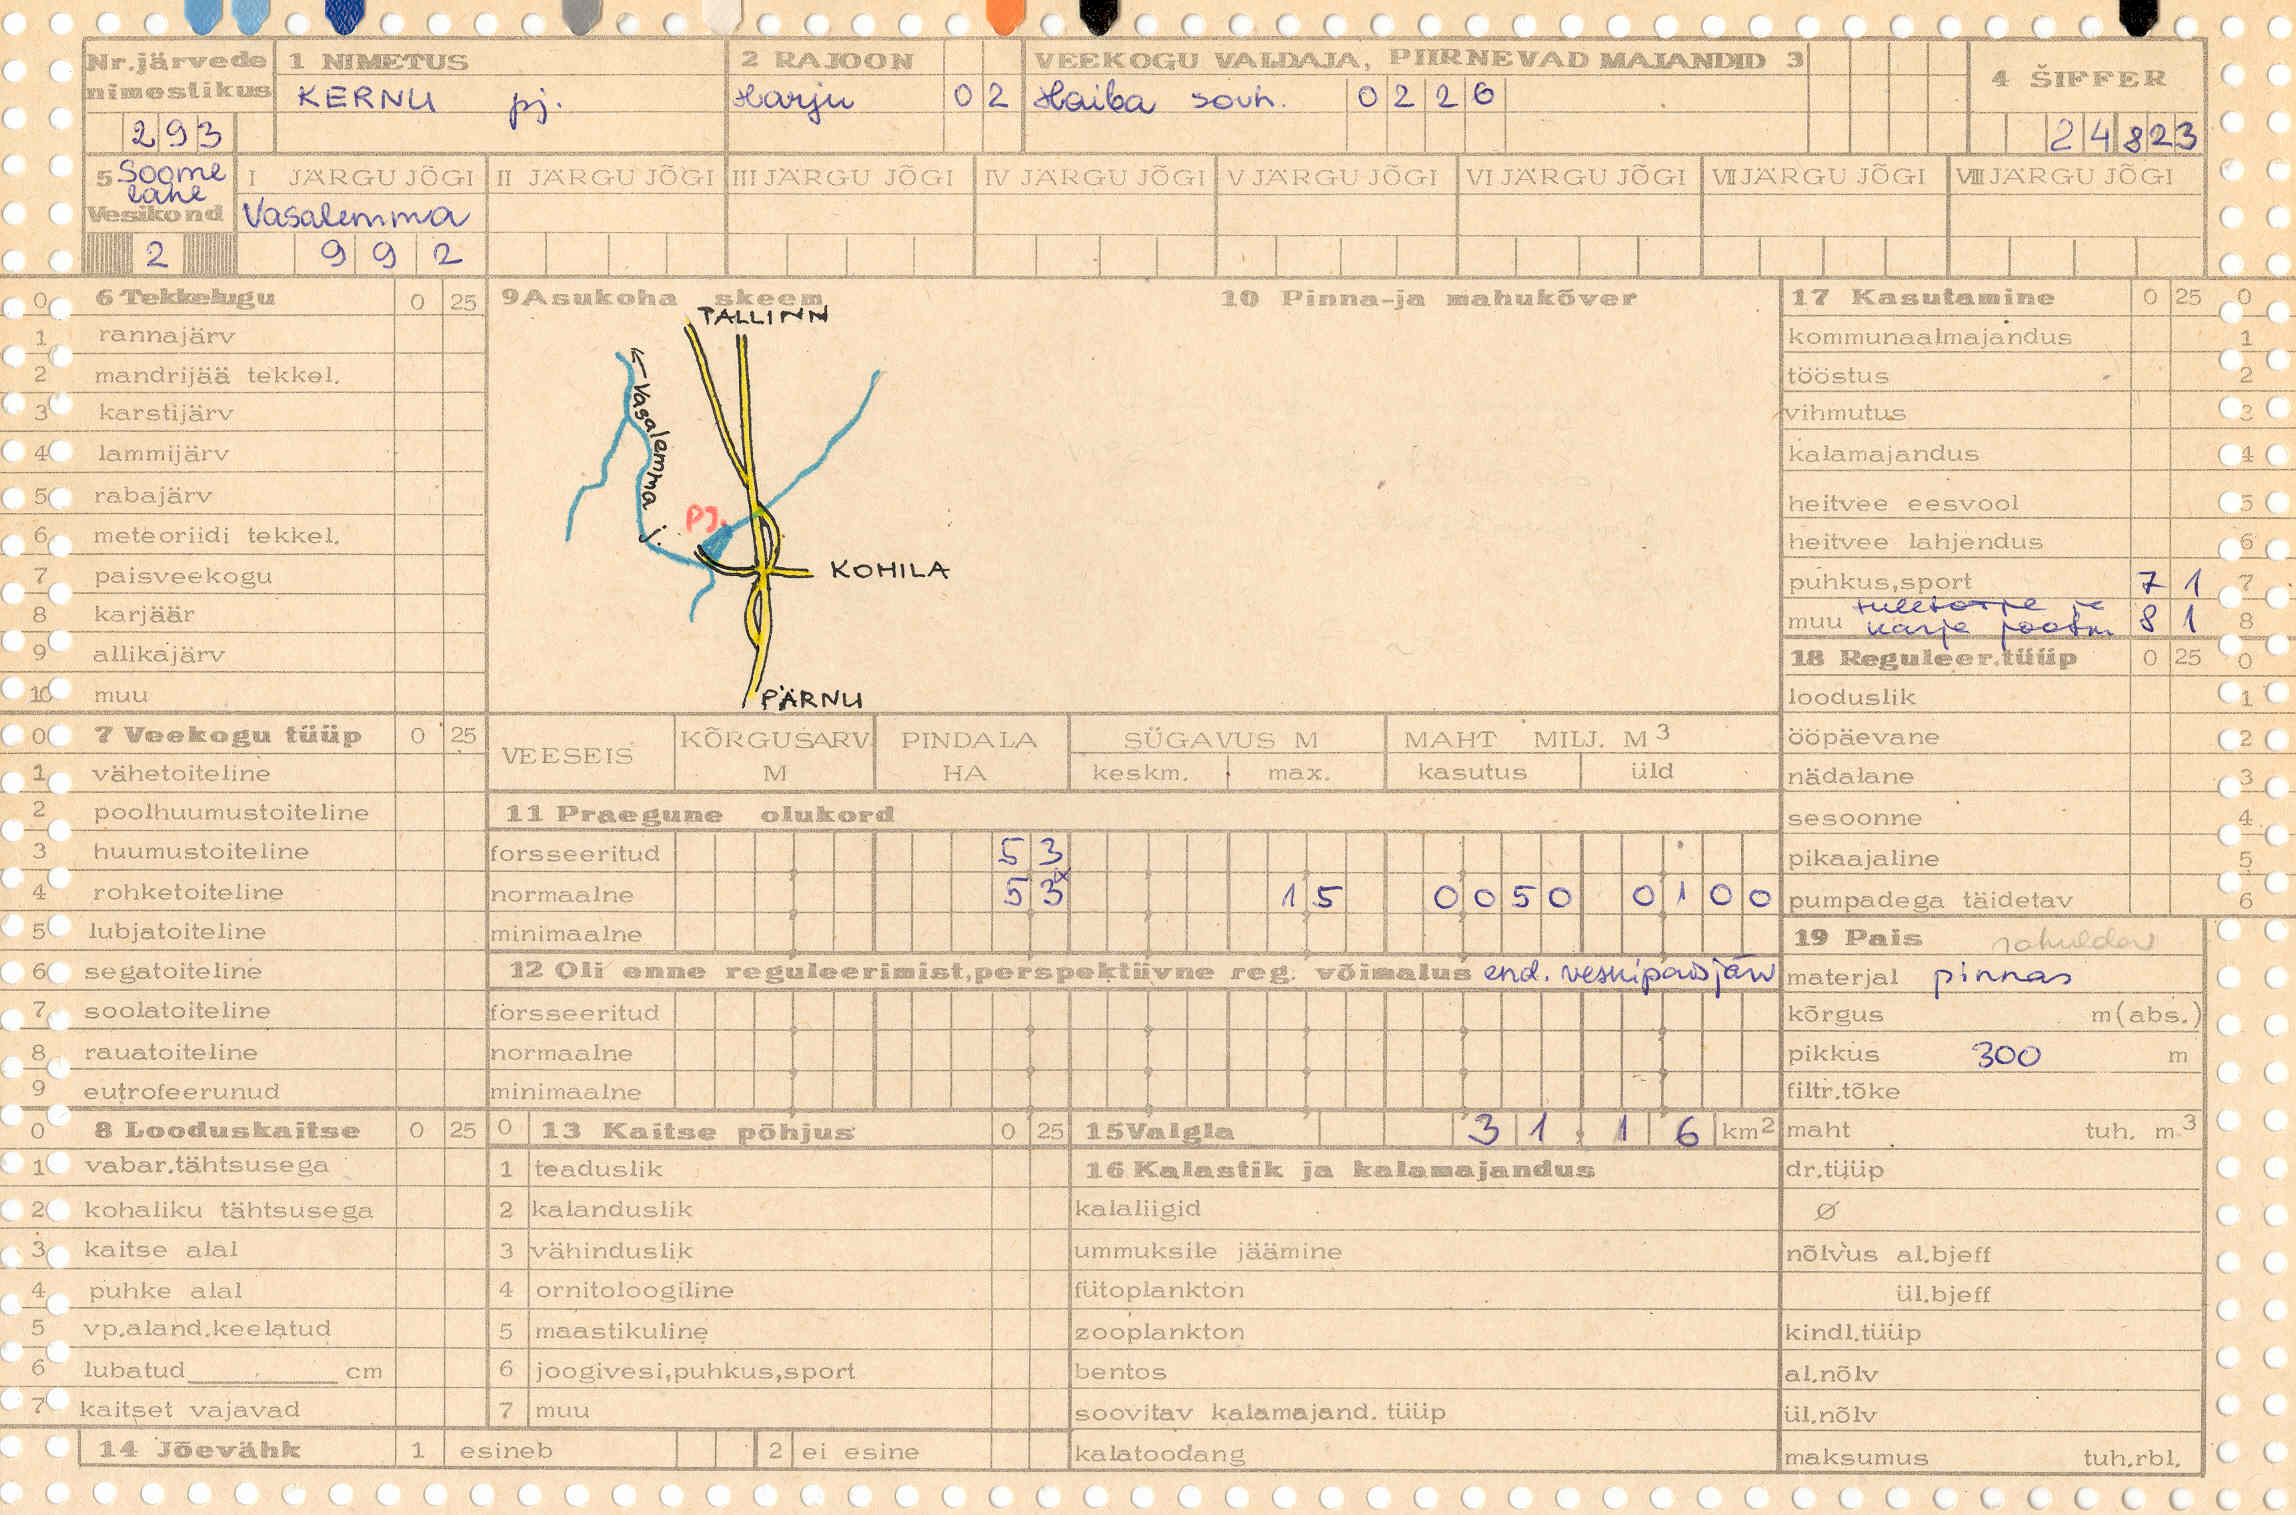 Nr.järvede nimestikus
293
1 NIMETUS
KERNU pj.
2 RAJOON
Harju 02
VEEKOGU VALDAJA, PIIRNEVAD MAJANDID 3
Haiba sovh. 0226
4 ŠIFFER
24823
5 Soome lahe
Vesikond
2
I JÄRGU JÕGI
Vasalemma
992
II JÄRGU JÕGI
III JÄRGU JÕGI
IV JÄRGU JÕGI
V JÄRGU JÕGI
VI JÄRGU JÕGI
VII JÄRGU JÕGI
VIII JÄRGU JÕGI
0 6 Tekkelugu 0 25
1 rannajärv
2 mandrijää tekkel.
3 karstijärv
4 lammijärv
5 rabajärv
6 meteoriidi tekkel.
7 paisveekogu
8 karjäär
9 allikajärv
10 muu
0 7 Veekogu tüüp 0 25
1 vähetoiteline
2 poolhuumustoiteline
3 huumustoiteline
4 rohketoiteline
5 lubjatoiteline
6 segatoiteline
7 soolatoiteline
8 rauatoiteline
9 eutrofeerunud
0 8 Looduskaitse 0 25
1 vabar.tähtsusega
2 kohaliku tähtsusega
3 kaitse alal
4 puhke alal
5 vp.aland.keelatud
6 lubatud cm
7 kaitset vajavad
14 Jõevähk 1 esineb 2 ei esine
9 Asukoha skeem
TALLINN
← Vasalemma j.
pj.
KOHILA
PÄRNU
10 Pinna-ja mahukõver
VEESEIS
KÕRGUSARV M
PINDALA HA
SÜGAVUS M
keskm. max.
MAHT MILJ. M3
kasutus üld
11 Praegune olukord
forsseeritud 53
normaalne 53x 15 0050 0100
minimaalne
12 Oli enne reguleerimist,perspektiivne reg. võimalus end. veskipaisjärv
forsseeritud
normaalne
minimaalne
0 13 Kaitse põhjus 0 25
1 teaduslik
2 kalanduslik
3 vähinduslik
4 ornitoloogiline
5 maastikuline
6 joogivesi,puhkus,sport
7 muu
15 Valgla 31,16 km2
16 Kalastik ja kalamajandus
kalaliigid
ummuksile jäämine
fütoplankton
zooplankton
bentos
soovitav kalamajand. tüüp
kalatoodang
17 Kasutamine 0 25 0
kommunaalmajandus 1
tööstus 2
vihmutus 3
kalamajandus 4
heitvee eesvool 5
heitvee lahjendus 6
puhkus,sport 7 1 7
muu tuletõrje ja karja jootm. 8 1 8
18 Reguleer.tüüp 0 25 0
looduslik 1
ööpäevane 2
nädalane 3
sesoonne 4
pikaajaline 5
pumpadega täidetav 6
19 Pais
materjal pinnas
kõrgus m(abs.)
pikkus 300 m
filtr.tõke
maht tuh. m3
dr.tüüp
Ø
nõlvus al.bjeff
ül.bjeff
kindl.tüüp
al.nõlv
ül.nõlv
maksumus tuh.rbl.